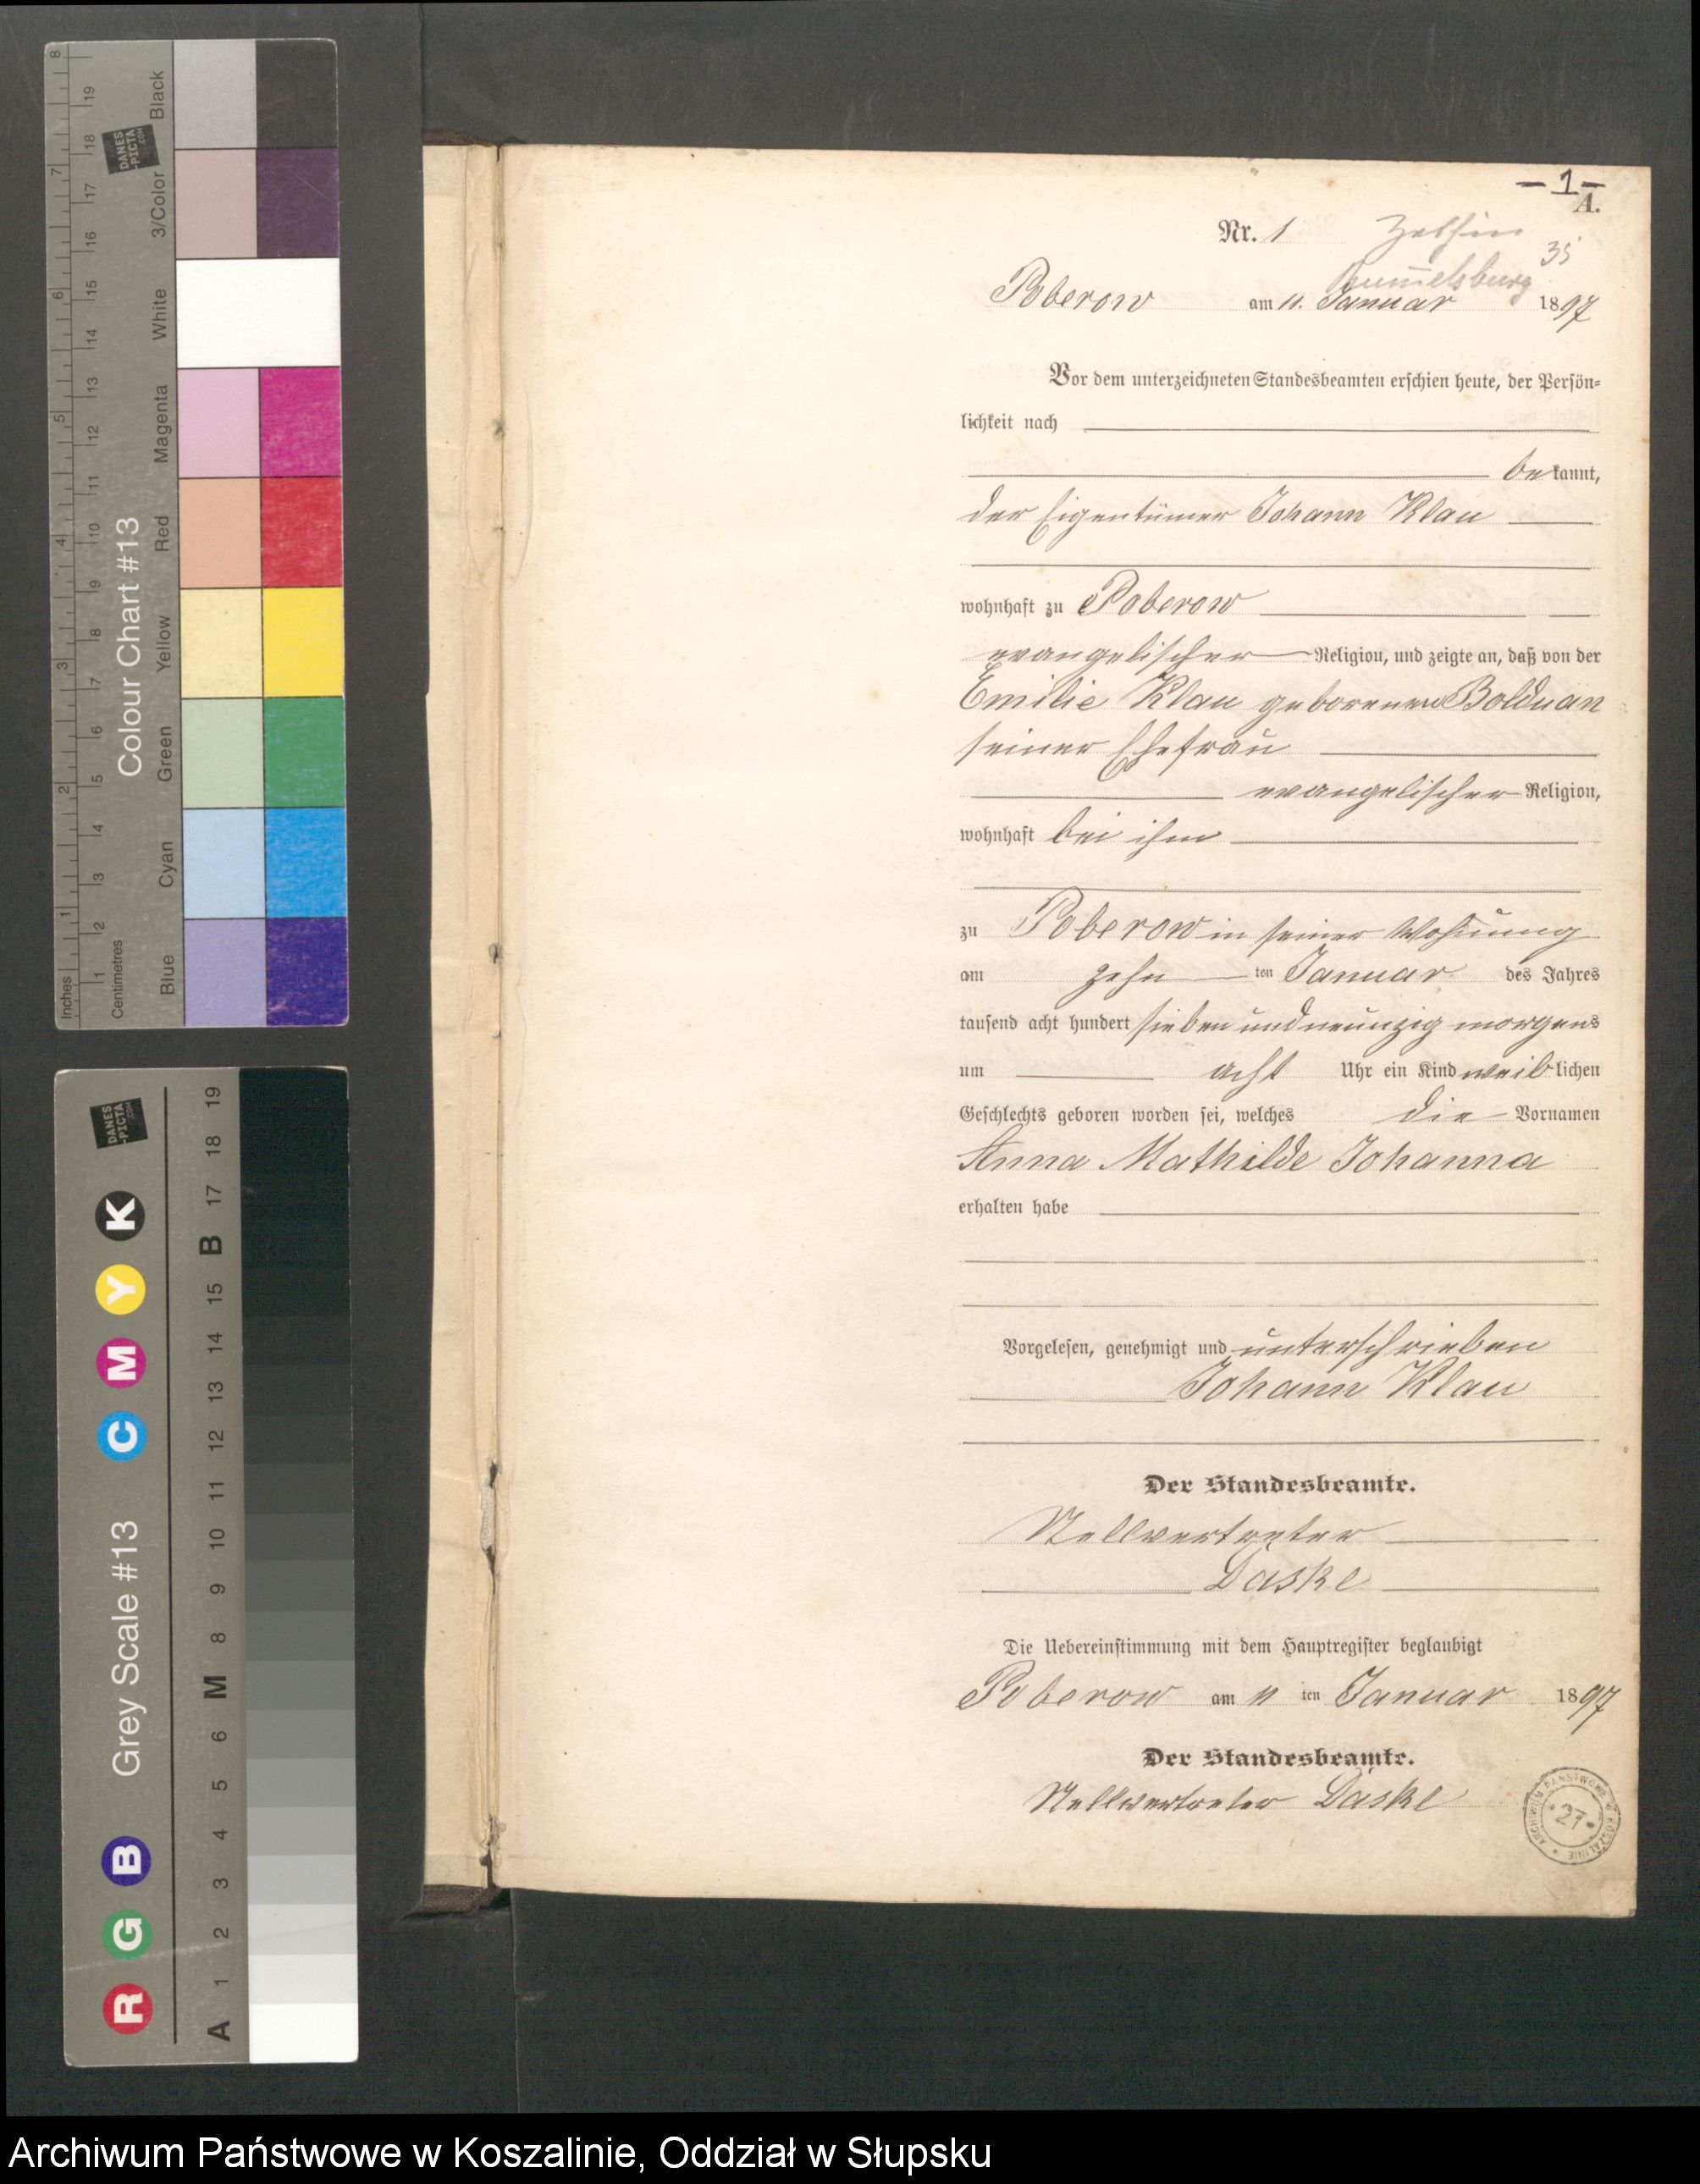 — 1 —
A.
Nr. 1
35
Rummelsburg
Poberow am 11. Januar 1897
Vor dem unterzeichneten Standesbeamten erschien heute, der Persön=
lichkeit nach
bekannt,
der Eigentümer Johann Klau
wohnhaft zu Poberow
evangelischer Religion, und zeigte an, daß von der
Emilie Klau geborenen Bolduan
seiner Ehefrau
evangelischer Religion,
wohnhaft bei ihm
zu Poberow in seiner Wohnung
am zehn ten Januar des Jahres
tausend acht hundert sieben und neunzig morgens
um acht Uhr ein Kind weiblichen
Geschlechts geboren worden sei, welches die Vornamen
Anna Mathilde Johanna
erhalten habe
Vorgelesen, genehmigt und unterschrieben
Johann Klau
Der Standesbeamte.
Stellvertreter
Däske
Die Uebereinstimmung mit dem Hauptregister beglaubigt
Poberow am 11 ten Januar 1897
Der Standesbeamte.
Stellvertreter Däske
ARCHIWUM PAŃSTWOWE W KOSZALINIE
* 27 *
Colour Chart #13
Inches 1 2 3 4 5 6 7 8
Centimetres 1 2 3 4 5 6 7 8 9 10 11 12 13 14 15 16 17 18 19
Blue Cyan Green Yellow Red Magenta White 3/Color Black
DANES
-PICTA
.COM
Grey Scale #13
R G B C M Y K
A 1 2 3 4 5 6 M 8 9 10 11 12 13 14 15 B 17 18 19
DANES
-PICTA
.COM
Archiwum Państwowe w Koszalinie, Oddział w Słupsku